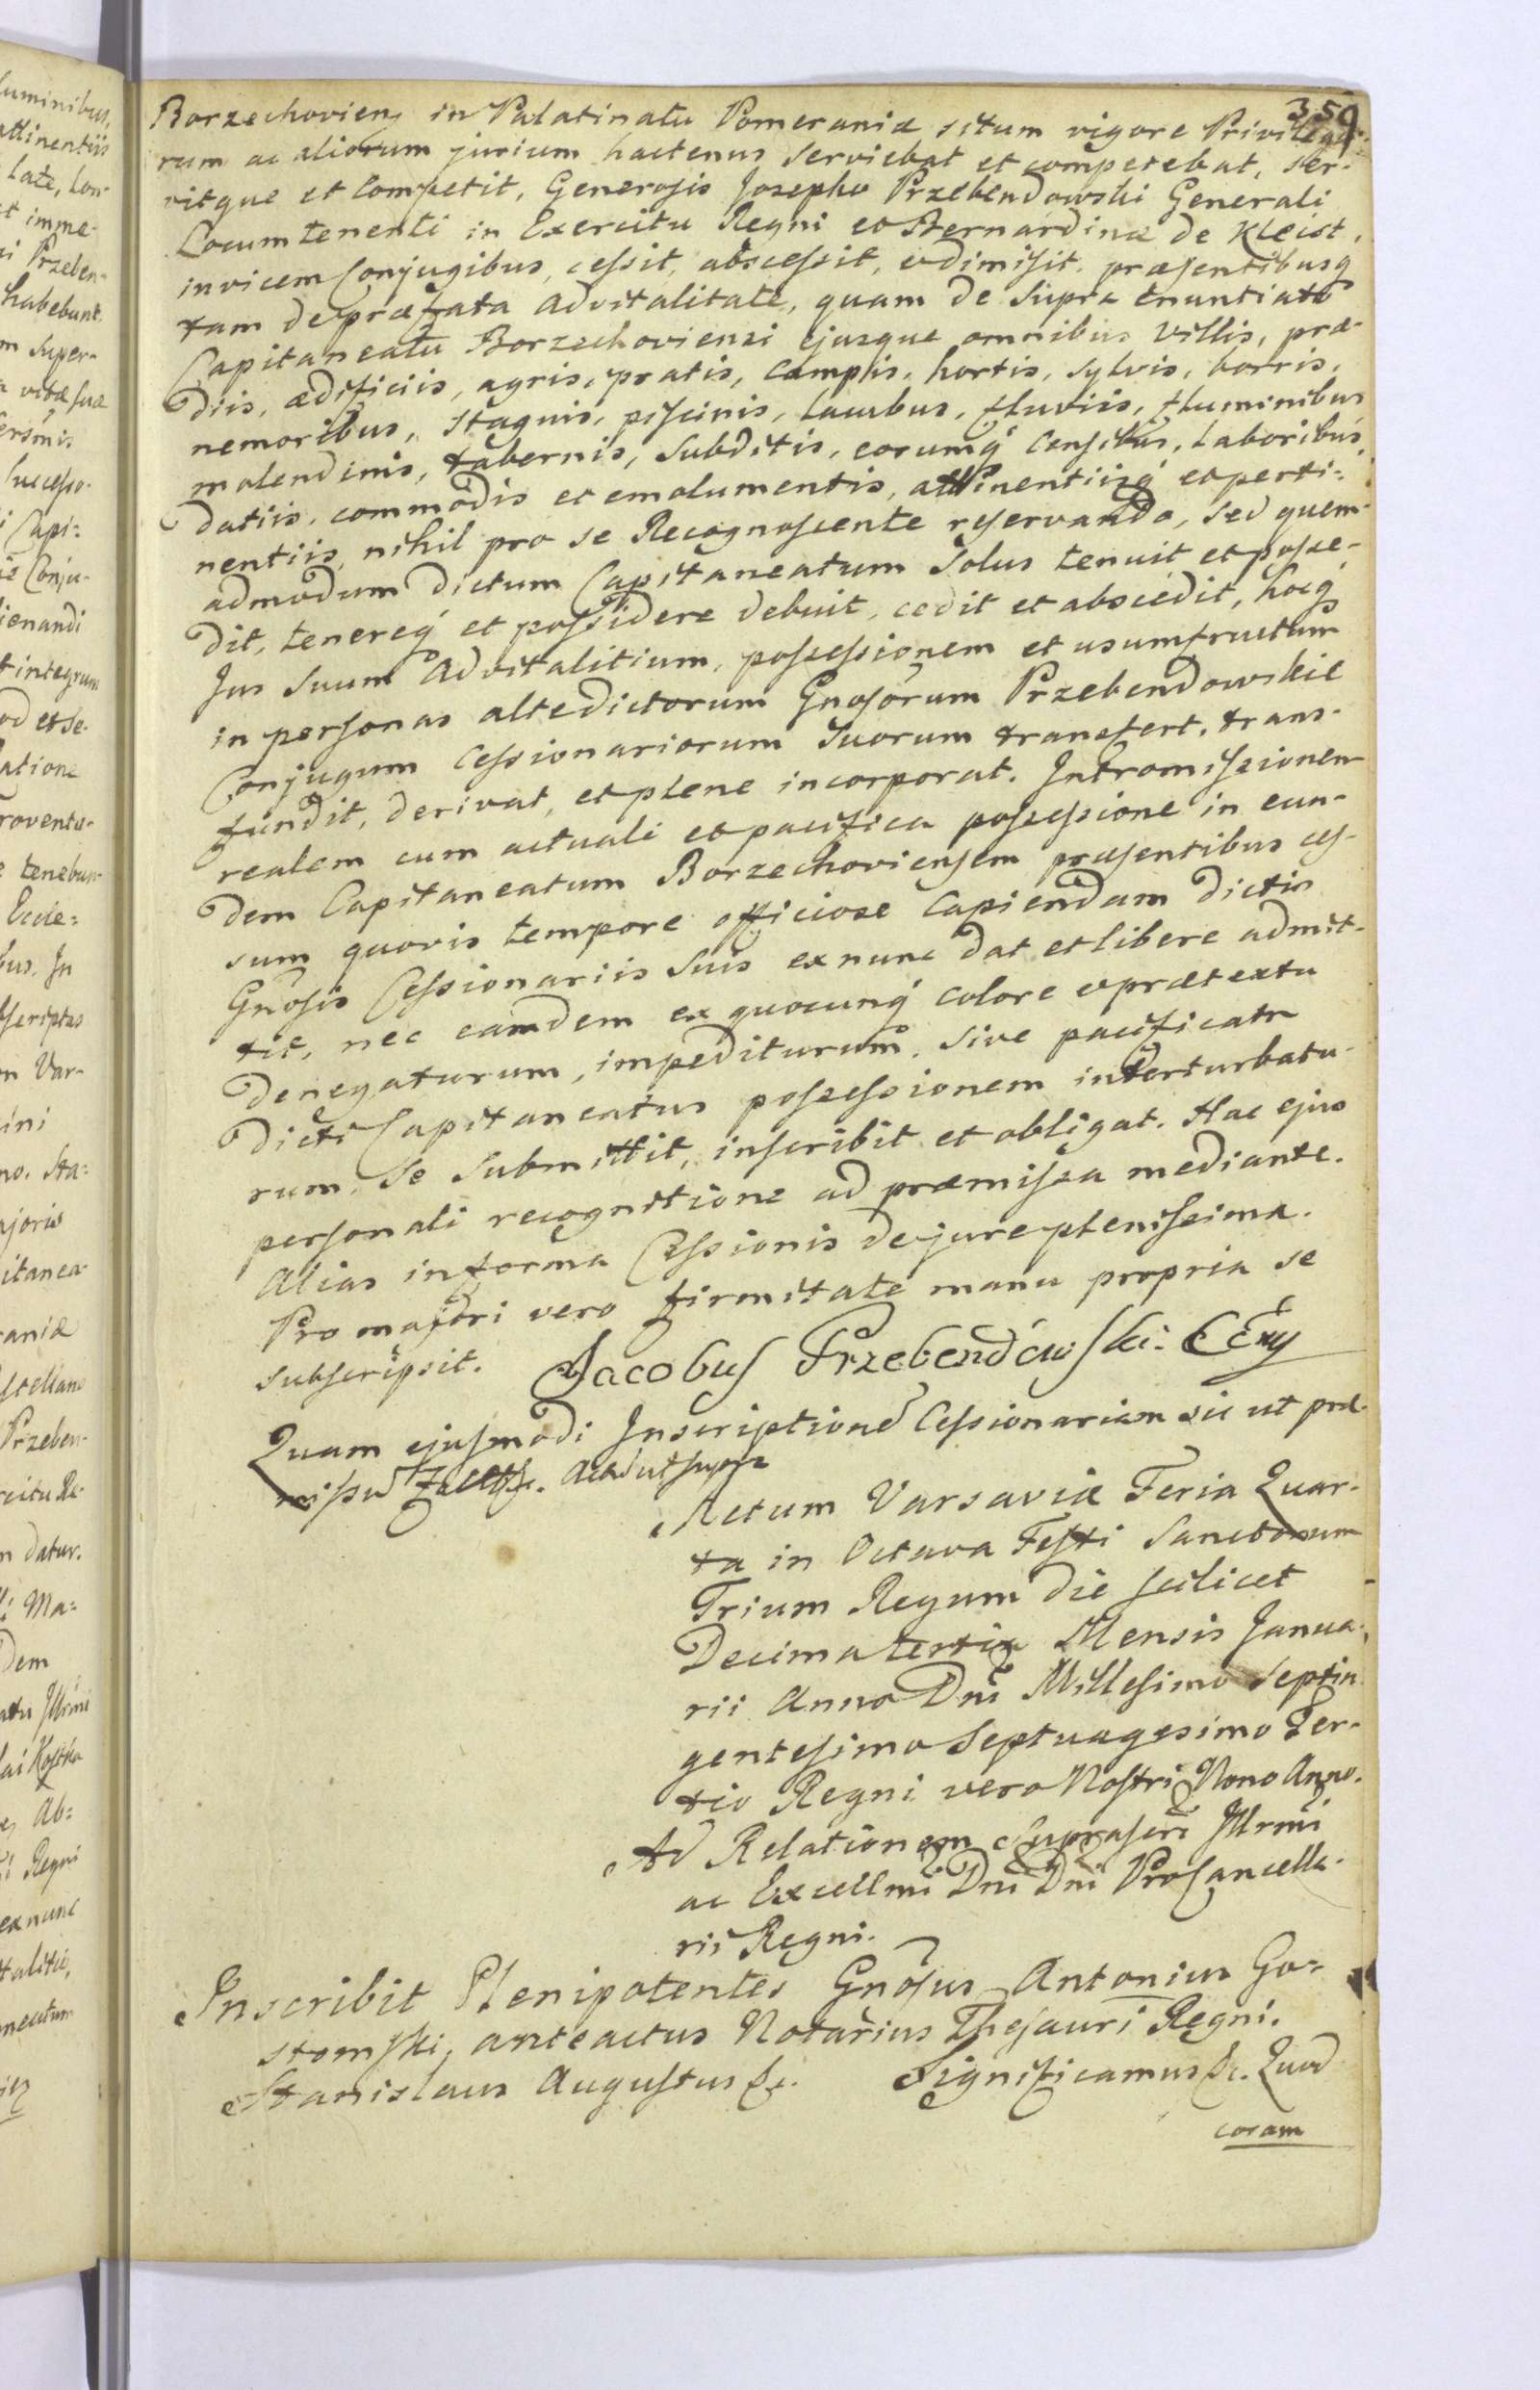 359
Borzechovien in Palatinatu Pomeraniæ situm vigore Privilegio-
rum ac aliorum jurium hactenus serviebat et competebat, ser-
vitque et competit, Generosis Josepho Przebendowski Generali
Locumtenenti in Exercitu Regni et Bernardinæ de Kleist,
invicem Conjugibus, cessit, abscessit, et dimisit, præsentibusq
tam de præfata advitalitate, quam de supra enuntiato
Capitaneatu Borzechoviensi ejusque omnibus villis, præ-
diis, ædificiis, agris, pratis, campis, hortis, sylvis, borris,
nemoribus, stagnis, piscinis, lacubus, fluviis, fluminibus
molendinis, tabernis, subditis, eorumq censibus, laboribus,
datiis, commodis et emolumentis, attinentiisq et perti-
nentiis, nihil pro se Recognoscente reservando, sed quem-
admodum dictum Capitaneatum solus tenuit et posse-
dit, tenereq et possidere debuit, cedit et abscedit, hocq
Jus suum advitalitium, possessionem et usumfructum
in personas altedictorum Gnosorum Przebendowskie
Conjugum Cessionariorum suorum transfert, trans-
fundit, derivat, et plene incorporat. Intromissionem
realem cum actuali et pacifica possessione in eun-
dem Capitaneatum Borzechoviensem præsentibus ces-
sum quovis tempore officiose capiendam dictis
Gnosis Cessionariis suis ex nunc dat et libere admit-
tit, nec eamdem ex quocunq colore et prætextu
denegaturum, impediturum, sive pacificatn
dicti Capitaneatus possessionem interturbatu-
rum, se submittit, inscribit et obligat. Hac ejus
personali recognitione ad præmissa mediante.
Alias in forma Cessionis de jure plenissima.
Pro majori vero firmitate manu propria se
subscripsit. Jacobus Przebendowski.
Quam ejusmodi Inscriptione Cessionariam sic ut præ-
Actu ut supra
Actum Varsaviæ Feria Quar-
ta in Octava Festi Sanctorum
Trium Regum die scilicet
Decima tertia Mensis Janua-
rii Anno Dni Millesimo Septin
gentesimo Septuagesimo Ter-
tio Regni vero Nostri Nono Anno.
Ad Relationem Suprascri Illrmi
ac Excellmi Dni Dni ProCancella-
rii Regni.
Inscribit Plenipotentes Gnosus Antonius Go-
stomski, anteactus Notarius Thesauri Regni.
Stanislaus Augustus &c. Significamus &c. Quod
coram